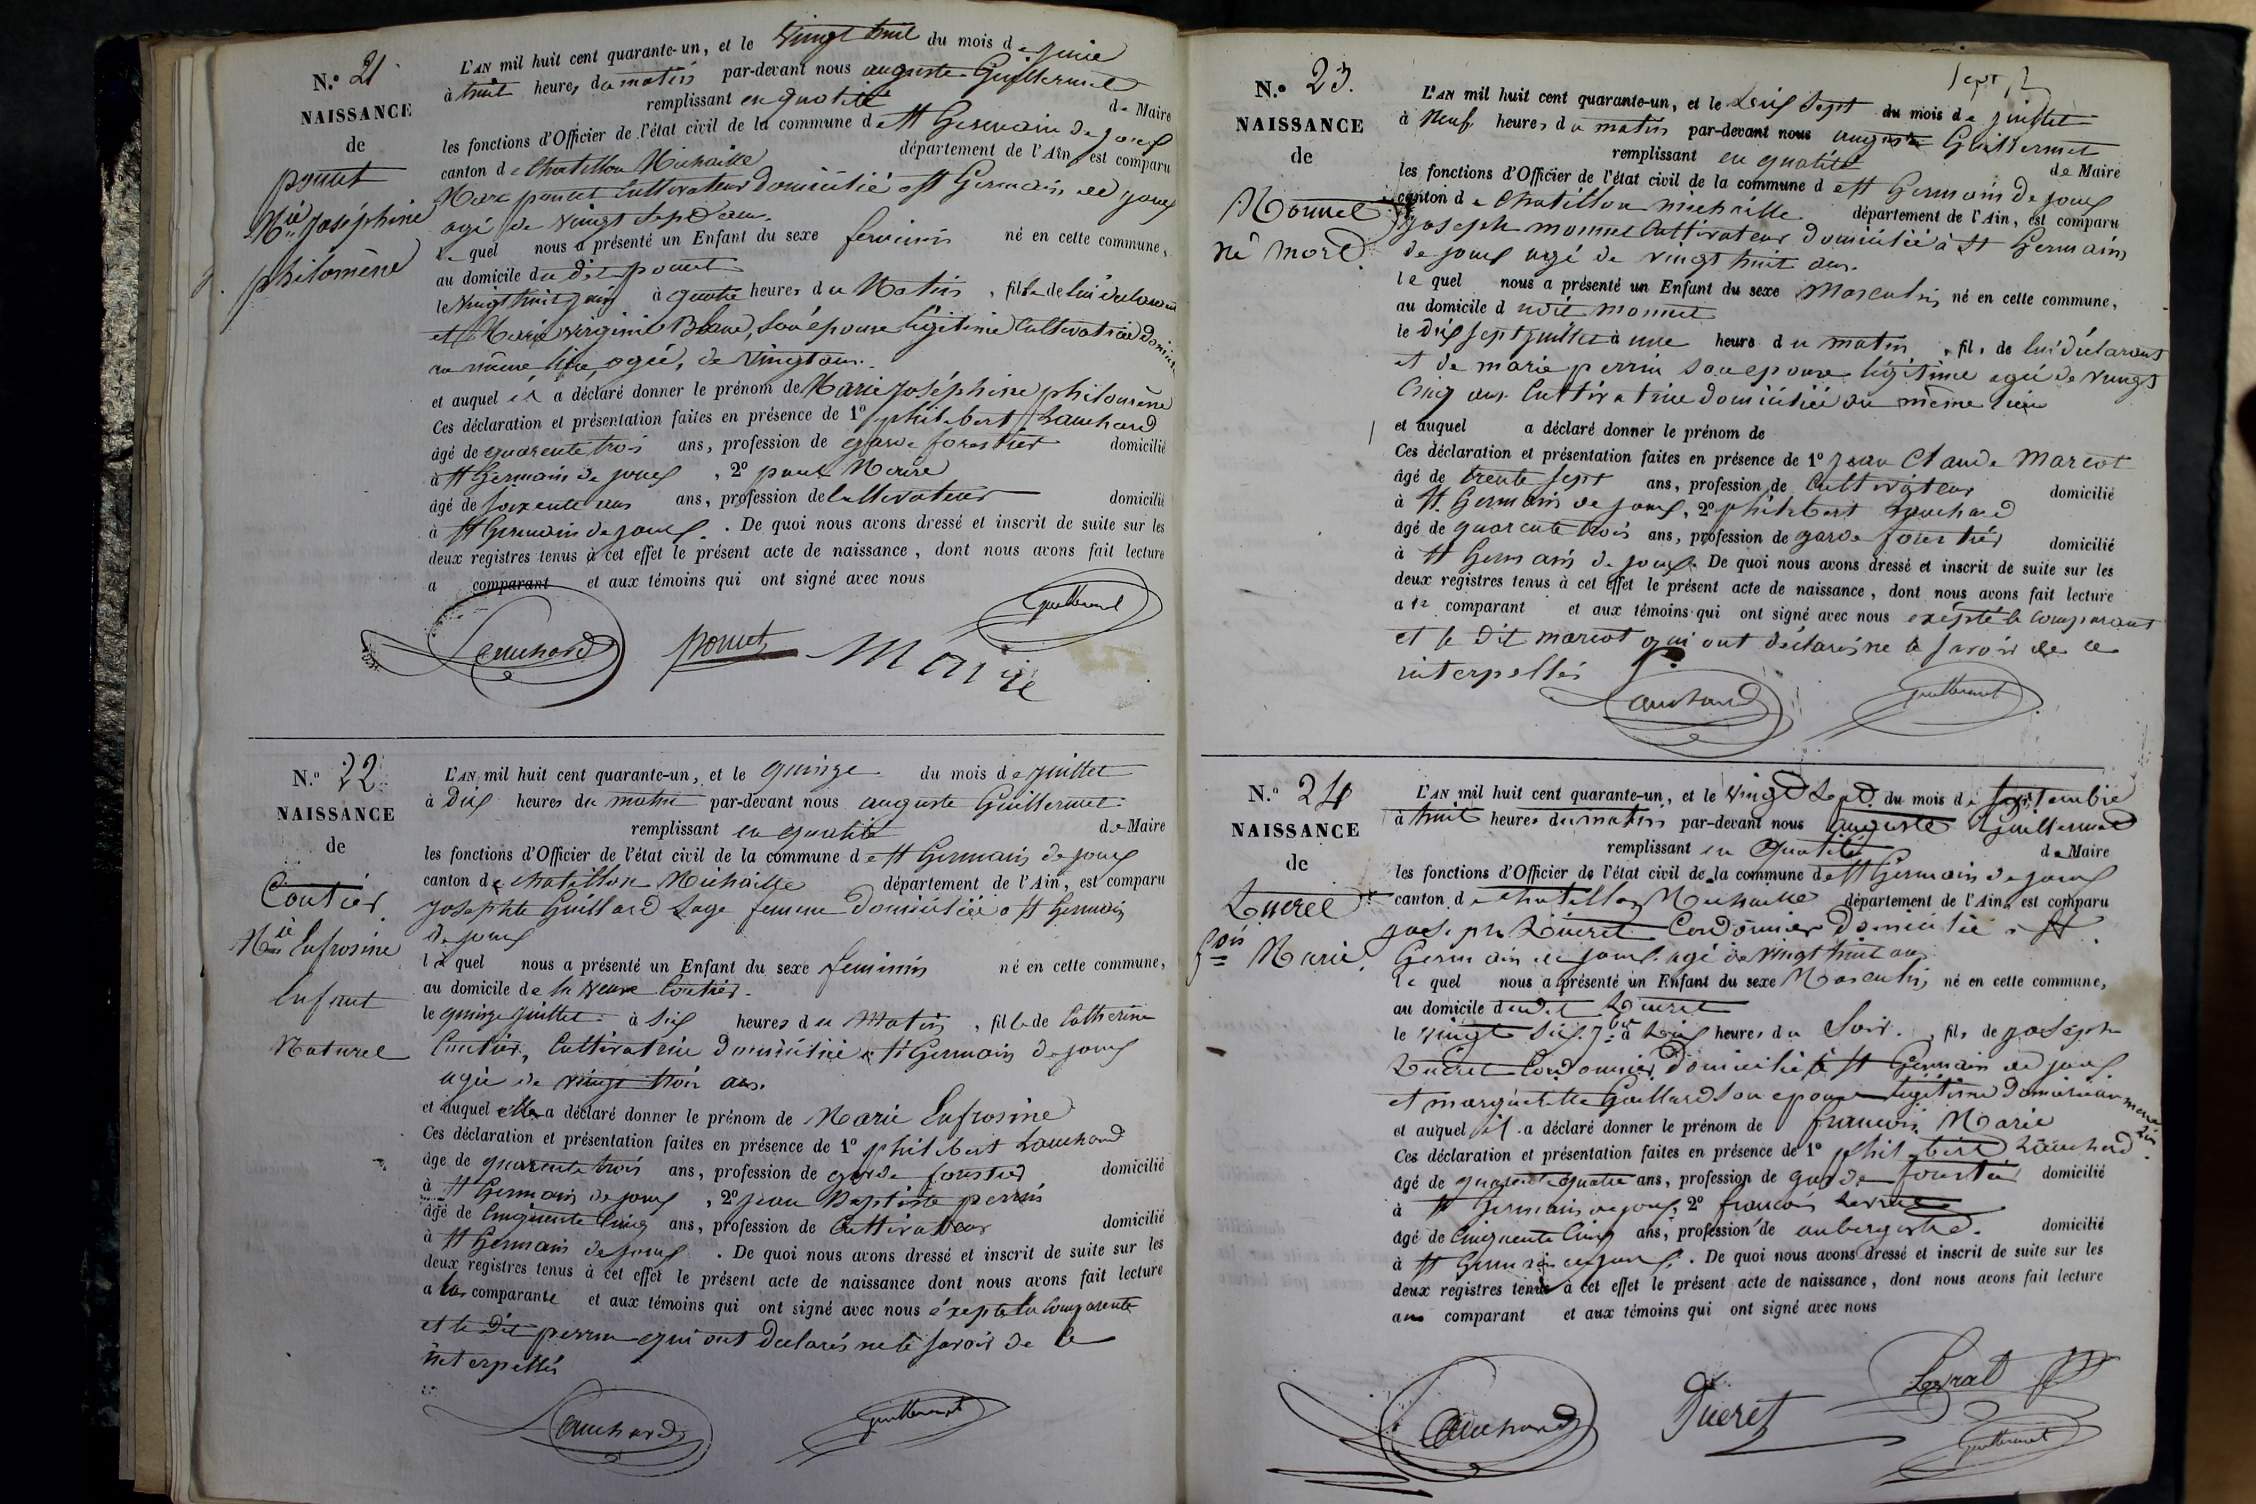 N.º 21
NAISSANCE
de
pouct
M.ie Joséphine
philomène
L'AN mil huit cent quarante-un, et le vingt huit du mois de juin
à huit heures du matin par-devant nous auguste Guillermet
remplissant en qualité de Maire
les fonctions d'Officier de l'état civil de la commune de St Germain de joux
canton de Chatillon Michaille département de l'Ain, est comparu
Marc poncet Cultivateur domicilié a St Germain de joux
agé de vingt sept ans.
le quel nous a présenté un Enfant du sexe feminin né en cette commune,
au domicile du dit poncet
le vingt huit juin à quatre heures du Matin, fille de lui déclarant
et Marie virginie Blanc, son épouse légitime Cultivatrice domiciliée
au même lieu, agée, de vingt ans.
et auquel il a déclaré donner le prénom de Marie joséphine philomène
Ces déclaration et présentation faites en présence de 1º philibert Lauchard
âgé de quarente trois ans, profession de garde forestier domicilié
à St Germain de joux, 2º
âgé de soixente ans, profession de Cultivateur domicilié
à St Germain de joux. De quoi nous avons dressé et inscrit de suite sur les
deux registres tenus à cet effet le présent acte de naissance, dont nous avons fait lecture
a comparant et aux témoins qui ont signé avec nous
Lauchard poncet Guillermet
N.º 22
NAISSANCE
de
Coutier
M.ie Eufrosine
Enfant
Naturel
L'AN mil huit cent quarante-un, et le quinze du mois de juillet
à dix heures du matin par-devant nous auguste Guillermet
remplissant en qualité de Maire
les fonctions d'Officier de l'état civil de la commune de St Germain de joux
canton de chatillon Michaille département de l'Ain, est comparu
Josephte Guillard Sage femme domiciliée a St Germain
de joux
la quel nous a présenté un Enfant du sexe feminin né en cette commune,
au domicile de la veuve Coutier.
le quinze juillet à six heures du Matin, fille de Catherine
Coutier, Cultivatrice domiciliée a St Germain de joux
agée de vingt trois ans.
et auquel elle a déclaré donner le prénom de Marie Eufrosine
Ces déclaration et présentation faites en présence de 1º philibert Lauchard
âgé de quarente trois ans, profession de garde forestier domicilié
à St Germain de joux, 2º jean Baptiste perrin
âgé de Cinquente Cinq ans, profession de Cultivateur domicilié
à St Germain de joux. De quoi nous avons dressé et inscrit de suite sur les
deux registres tenus à cet effet le présent acte de naissance dont nous avons fait lecture
a la comparante et aux témoins qui ont signé avec nous éxepté la comparente
et le dit perrin qui ont déclarés ne le savoir de ce
interpellés
Lauchard Guillermet
N.º 23.
NAISSANCE
de
Monnet
né mort
sept
L'AN mil huit cent quarante-un, et le dix sept du mois de juillet
à neuf heures du matin par-devant nous auguste Guillermet
remplissant en qualité de Maire
les fonctions d'Officier de l'état civil de la commune de St Germain de joux
canton de Chatillon michaille département de l'Ain, est comparu
joseph monnet Cultivateur domicilié à St Germain
de joux agé de vingt huit ans.
le quel nous a présenté un Enfant du sexe Masculin né en cette commune,
au domicile dudit monnet
le dix sept juillet à une heure du matin, fils de lui déclarant
et de marie perrin son epouse légitime agée de vingt
Cinq ans Cultivatrice domiciliée au même lieu
et auquel a déclaré donner le prénom de
Ces déclaration et présentation faites en présence de 1º Jean Claude Marcot
âgé de trente sept ans, profession de Cultivateur domicilié
à St Germain de joux, 2º philibert Lauchard
âgé de quarente trois ans, profession de garde forestier domicilié
à St Germain de joux. De quoi nous avons dressé et inscrit de suite sur les
deux registres tenus à cet effet le présent acte de naissance, dont nous avons fait lecture
a le comparant et aux témoins qui ont signé avec nous exepté le comparant
et le dit marcot qui ont déclarés ne le savoir de ce
interpellés
Lauchard Guillermet
N.º 24
NAISSANCE
de
Ducret
f.ois Marie
L'AN mil huit cent quarante-un, et le vingt Sept du mois de septembre
à huit heures du matin par-devant nous auguste Guillermet
remplissant en qualité de Maire
les fonctions d'Officier de l'état civil de la commune de St Germain de joux
canton de chatillon Michaille département de l'Ain, est comparu
joseph Ducret Cordonnier domicilié a St
Germain de joux agé de vingt huit ans
le quel nous a présenté un Enfant du sexe Masculin né en cette commune,
au domicile dudit Ducret
le vingt six 7.bre à dix heures du Soir, fils de joseph
Ducret Cordonnier domicilié à St Germain de joux
et margueritte Guillard son epouse légitime domiciliée au meme lieu
et auquel il a déclaré donner le prénom de francois Marie
Ces déclaration et présentation faites en présence de 1º philibert Lauchard
âgé de quarente quatre ans, profession de garde forestier domicilié
à St Germain de joux, 2º francois Levrat
âgé de Cinquente Cinq ans, profession de aubergiste. domicilié
à St Germain de joux. De quoi nous avons dressé et inscrit de suite sur les
deux registres tenus à cet effet le présent acte de naissance, dont nous avons fait lecture
au comparant et aux témoins qui ont signé avec nous
Lauchard Ducret Levrat
Guillermet